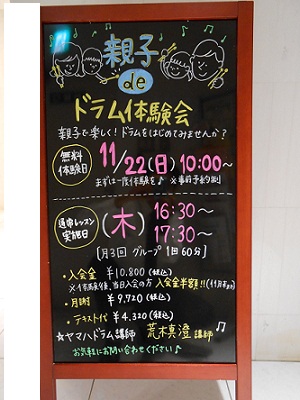 親子
de
ドラム体験会
親子で楽しく!ドラムをはじめてみませんか?
無料
体験日
11/22(日) 10:00～
まずは一度体験を♪ ※事前予約制
通常レッスン
実施日
(木) 16:30～
17:30～
[月3回 グループ 1回60分]
・入会金 ¥10,800(税込)
※体験後、当日入会の方 入会金半額!!(11月末まで)
・月謝 ¥9,720(税込)
・テキスト代 ¥4,320(税込)
☆ヤマハドラム講師 荒木真澄 講師
お気軽にお問い合わせください♪